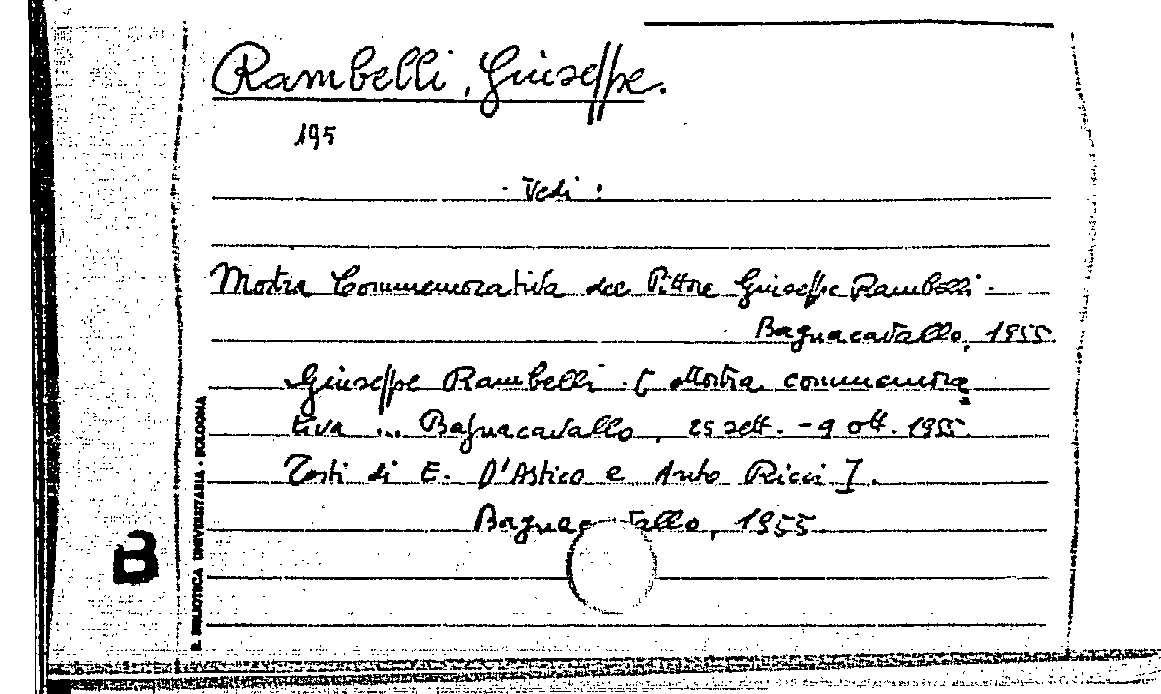 Rambelli, Giuseppe.
195
Vedi:
Mostra Commemorativa del Pittore Giuseppe Rambelli.
Bagnacavallo, 1955.
Giuseppe Rambelli. [Mostra commemora
tiva ... Bagnacavallo, 25 sett. - 9 ott. 1955.
Testi di E. D'Astico e Anto Ricci].
Bagnacavallo, 1955
B
R. BIBLIOTECA UNIVERSITARIA - BOLOGNA